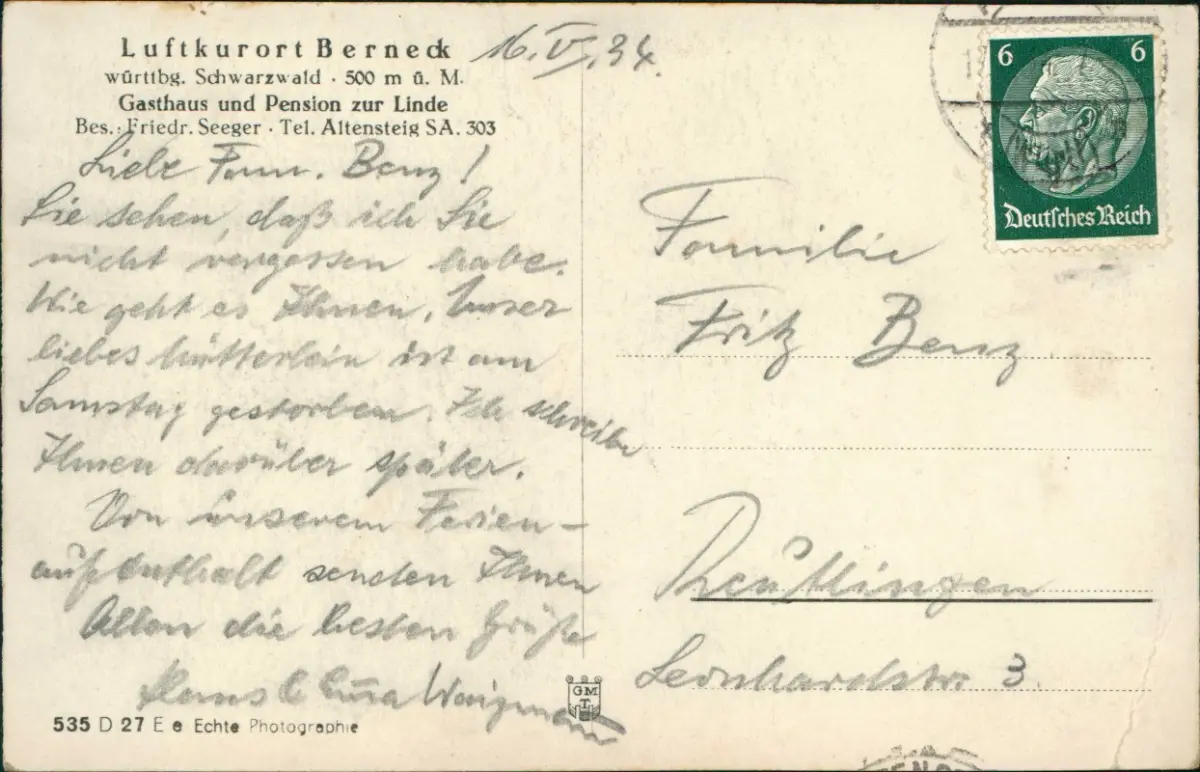 Luftkurort Berneck
württbg. Schwarzwald · 500 m ü. M.
Gasthaus und Pension zur Linde
Bes.: Friedr. Seeger · Tel. Altensteig SA. 303
16.V.34.
Liebe Fam. Benz!
Sie sehen, daß ich Sie
nicht vergessen habe.
Wie geht es Ihnen. Unser
liebes Mütterlein ist am
Samstag gestorben. Ich schreibe
Ihnen darüber später.
Von unserem Ferien-
aufenthalt senden Ihnen
Allen die besten Grüße
Hans
535 D 27 E e Echte Photographie
GMT
6 6
Deutsches Reich
Familie
Fritz Benz
Reutlingen
Leonhardstr. 3